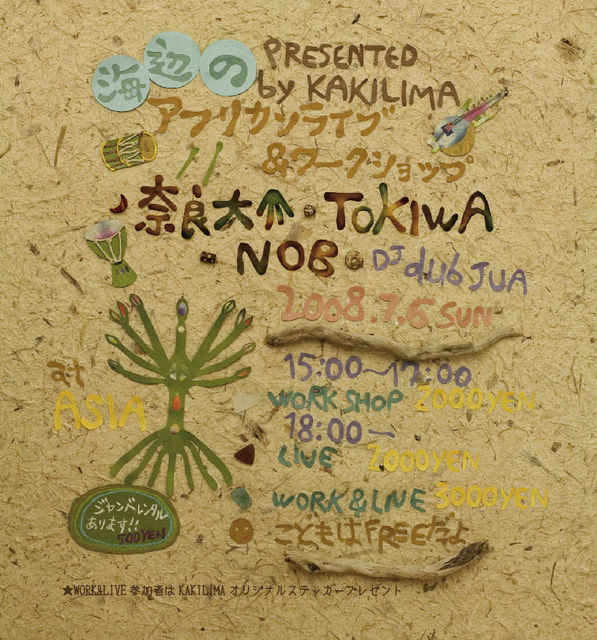 海辺の
PRESENTED
by KAKILIMA
アフリカンライブ
&ワークショップ
!!
奈良大介・TOKIWA
・NOB・DJ dub JUA
2008.7.6 SUN
at
ASIA
15:00〜17:00
WORK SHOP 2000YEN
18:00ー
LIVE 2000YEN
WORK&LIVE 3000YEN
こどもはFREEだよ
ジャンベレンタル
あります!!
500YEN
★WORK&LIVE 参加者は KAKILIMA オリジナルステッカープレゼント